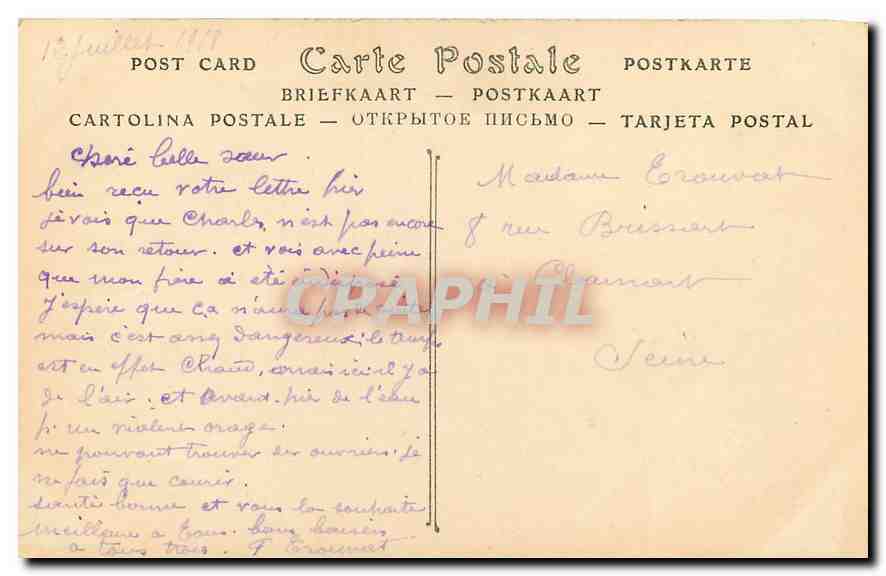 12 juillet 1918
POST CARD Carte Postale POSTKARTE
BRIEFKAART — POSTKAART
CARTOLINA POSTALE — ОТКРЫТОЕ ПИСЬМО — TARJETA POSTAL
Chere belle sœur.
bien reçu votre lettre hier
je vois que Charles n'est pas encore
sur son retour. et vois avec peine
que mon frère a été
J'espère que ça n'aura pas
mais c'est assez dangereux. le temps
est en effet chaud, mais ici il y a
de l'air. et avant-hier de l'eau
p. un violent orage.
ne pouvant trouver des ouvriers. je
ne fais que courir.
santé bonne et vous la souhaite
meilleure à tous. bons baisers
a tous trois. F Trouvat
Madame Trouvat
8 rue Brissart
Clamart
Seine
CPAPHIL